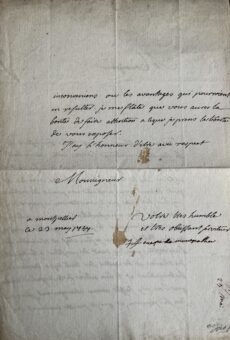 inconveniens ou les avantages qui pourroient
en resulter. je me flatte que vous aurés la
bonté de faire attention a ce que je prens la liberté
de vous exposer.
J'ay l'honneur d'etre avec respect
Monseigneur
a montpellier
le 23 may 1744
Votre tres humble
et tres obeissant serviteur
de montpellier